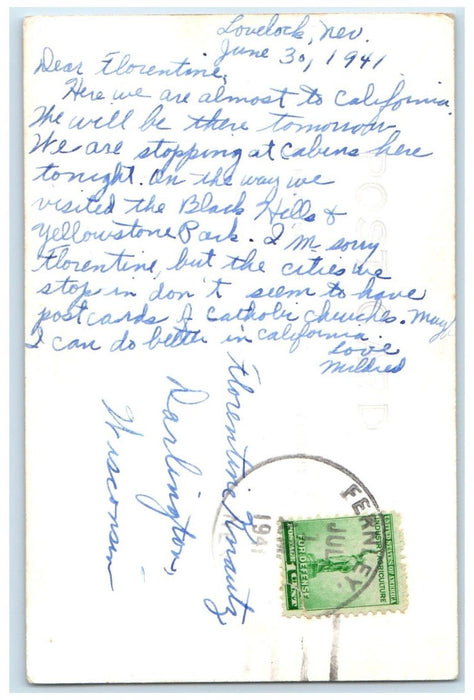 Lovelock, Nev.
June 30, 1941
Dear Florentine,
Here we are almost to California.
We will be there tomorrow
We are stopping at Cabins here
tonight. On the way we
visited the Black Hills &
Yellowstone Park. I'm sorry
Florentine, but the cities we
stop in don't seem to have
post cards of Catholic churches. May
I can do better in California.
Love
Mildred
Florentine Knautz
Darlington,
Wisconsin
FERNLEY.
JUL
1
1941
NEV.
UNITED STATES OF AMERICA
INDUSTRY AGRICULTURE
FOR DEFENSE
1¢
POSTCARD